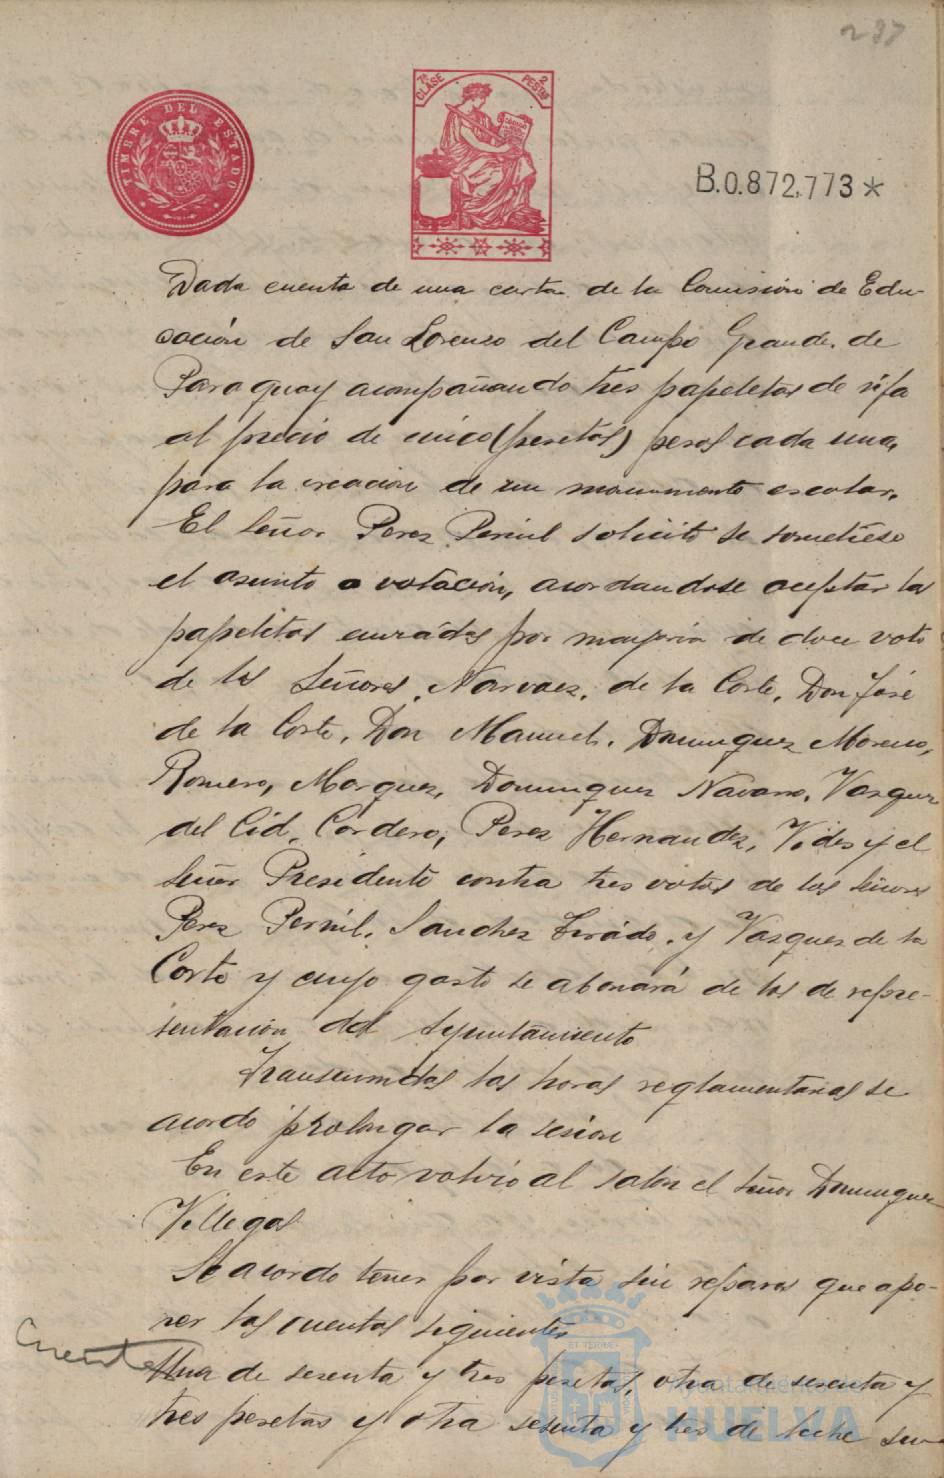 237
TIMBRE DEL ESTADO
7ª CLASE 2 PESTAS
B.0.872,773*
Dada cuenta de una carta de la Comisión de Edu-
cación de San Lorenzo del Campo Grande de
Paraguay acompañando tres papeletas de rifa
al precio de cinco (pesetas) pesos cada una,
para la creacion de un monumento escolar.
El Señor Perez Pernil solicitó se sometiese
el asunto a votación, acordandose aceptar las
papeletas enviadas por mayoria de doce voto
de los Señores Narvaez, de la Corte, Don José
de la Corte, Don Manuel, Dominguez Moreno,
Romero, Marquez, Dominguez Navarro, Vazquez
del Cid, Cordero, Perez Hernandez, Vides y el
Señor Presidente contra tres votos de los Señores
Perez Pernil, Sanchez Tirado, y Vazquez de la
Corte y cuyo gasto se abonará de los de repre-
sentación del Ayuntamiento
Transcurridas las horas reglamentarias se
acordó prolongar la sesion
En este acto volvió al salon el Señor Dominguez
Villegas
Se acordo tener por vista sin reparos que apo-
ner las cuentas siguientes
Cuentas
Una de sesenta y tres pesetas, otra de sesenta y
tres pesetas y otra sesenta y tres de leche
Ayuntamiento de
HUELVA